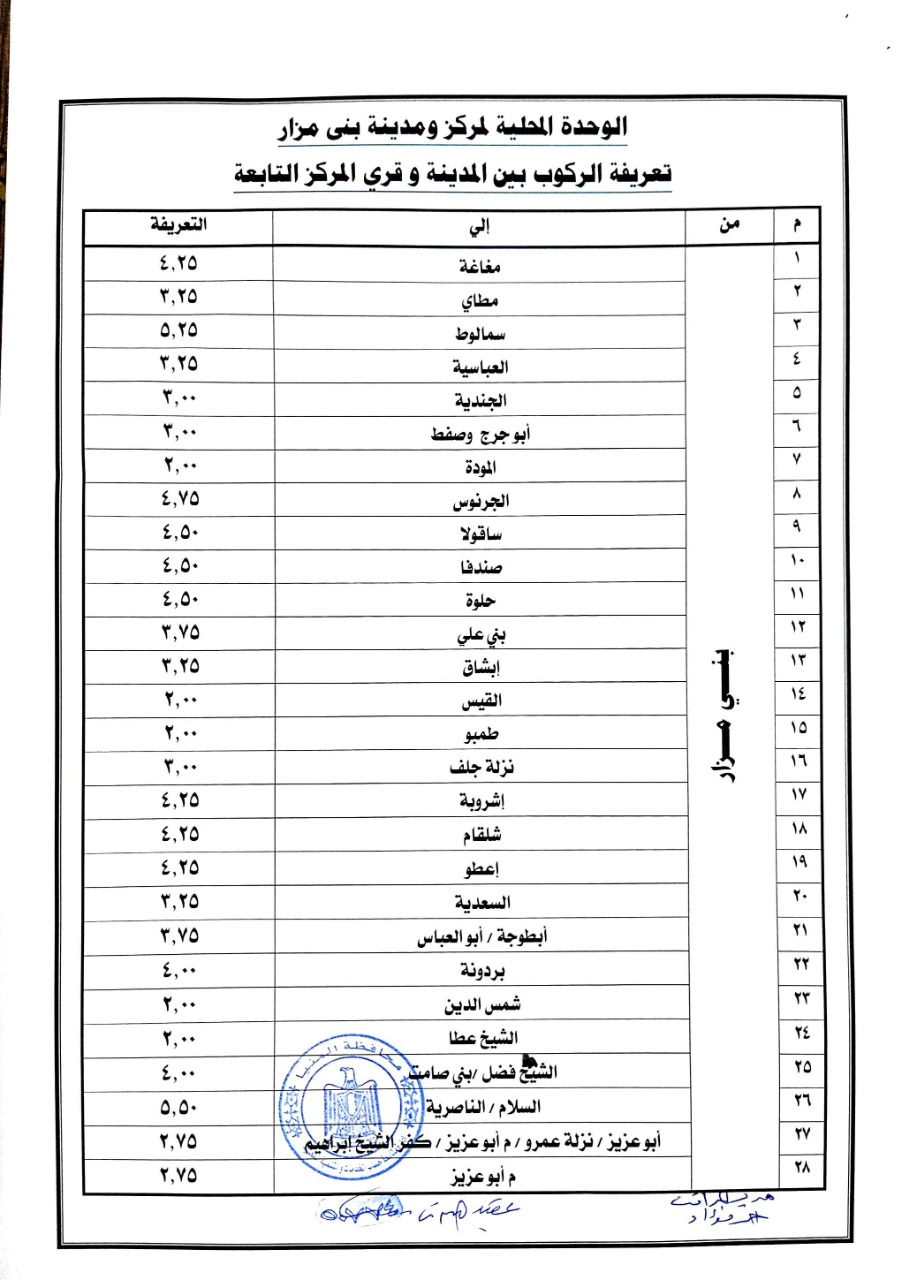 الوحدة المحلية لمركز ومدينة بنى مزار
تعريفة الركوب بين المدينة و قري المركز التابعة
م من إلي التعريفة
١ مغاغة ٤,٢٥
٢ مطاي ٣,٢٥
٣ سمالوط ٥,٢٥
٤ العباسية ٣,٢٥
٥ الجندية ٣,٠٠
٦ أبو جرج وصفط ٣,٠٠
٧ المودة ٢,٠٠
٨ الجرنوس ٤,٧٥
٩ ساقولا ٤,٥٠
١٠ صندفا ٤,٥٠
١١ حلوة ٤,٥٠
١٢ بني علي ٣,٧٥
١٣ إبشاق ٣,٢٥
١٤ القيس ٢,٠٠
١٥ طمبو ٢,٠٠
١٦ نزلة جلف ٣,٠٠
١٧ إشروبة ٤,٢٥
١٨ شلقام ٤,٢٥
١٩ إعطو ٤,٢٥
٢٠ السعدية ٣,٢٥
٢١ أبطوجة / أبو العباس ٣,٧٥
٢٢ بردونة ٤,٠٠
٢٣ شمس الدين ٢,٠٠
٢٤ الشيخ عطا ٢,٠٠
٢٥ الشيخ فضل /بني صامت ٤,٠٠
٢٦ السلام / الناصرية ٥,٥٠
٢٧ أبو عزيز / نزلة عمرو / م أبو عزيز / كفر الشيخ إبراهيم ٢,٧٥
٢٨ م أبو عزيز ٢,٧٥
بنــي مـزار
محافظة المنيا